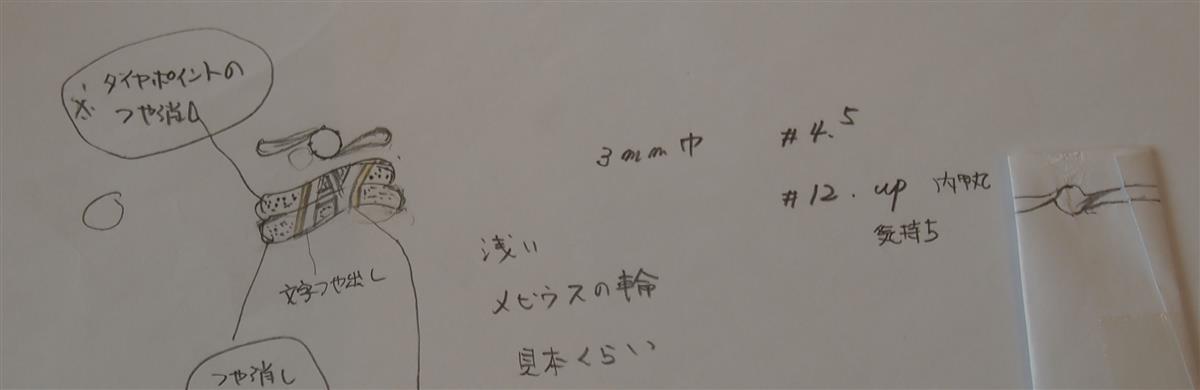 ※ ダイヤポイントの
つや消し
文字つや出し
つや消し
3mm巾
浅い
メビウスの輪
見本くらい
#4.5
#12.up 内甲丸
気持ち